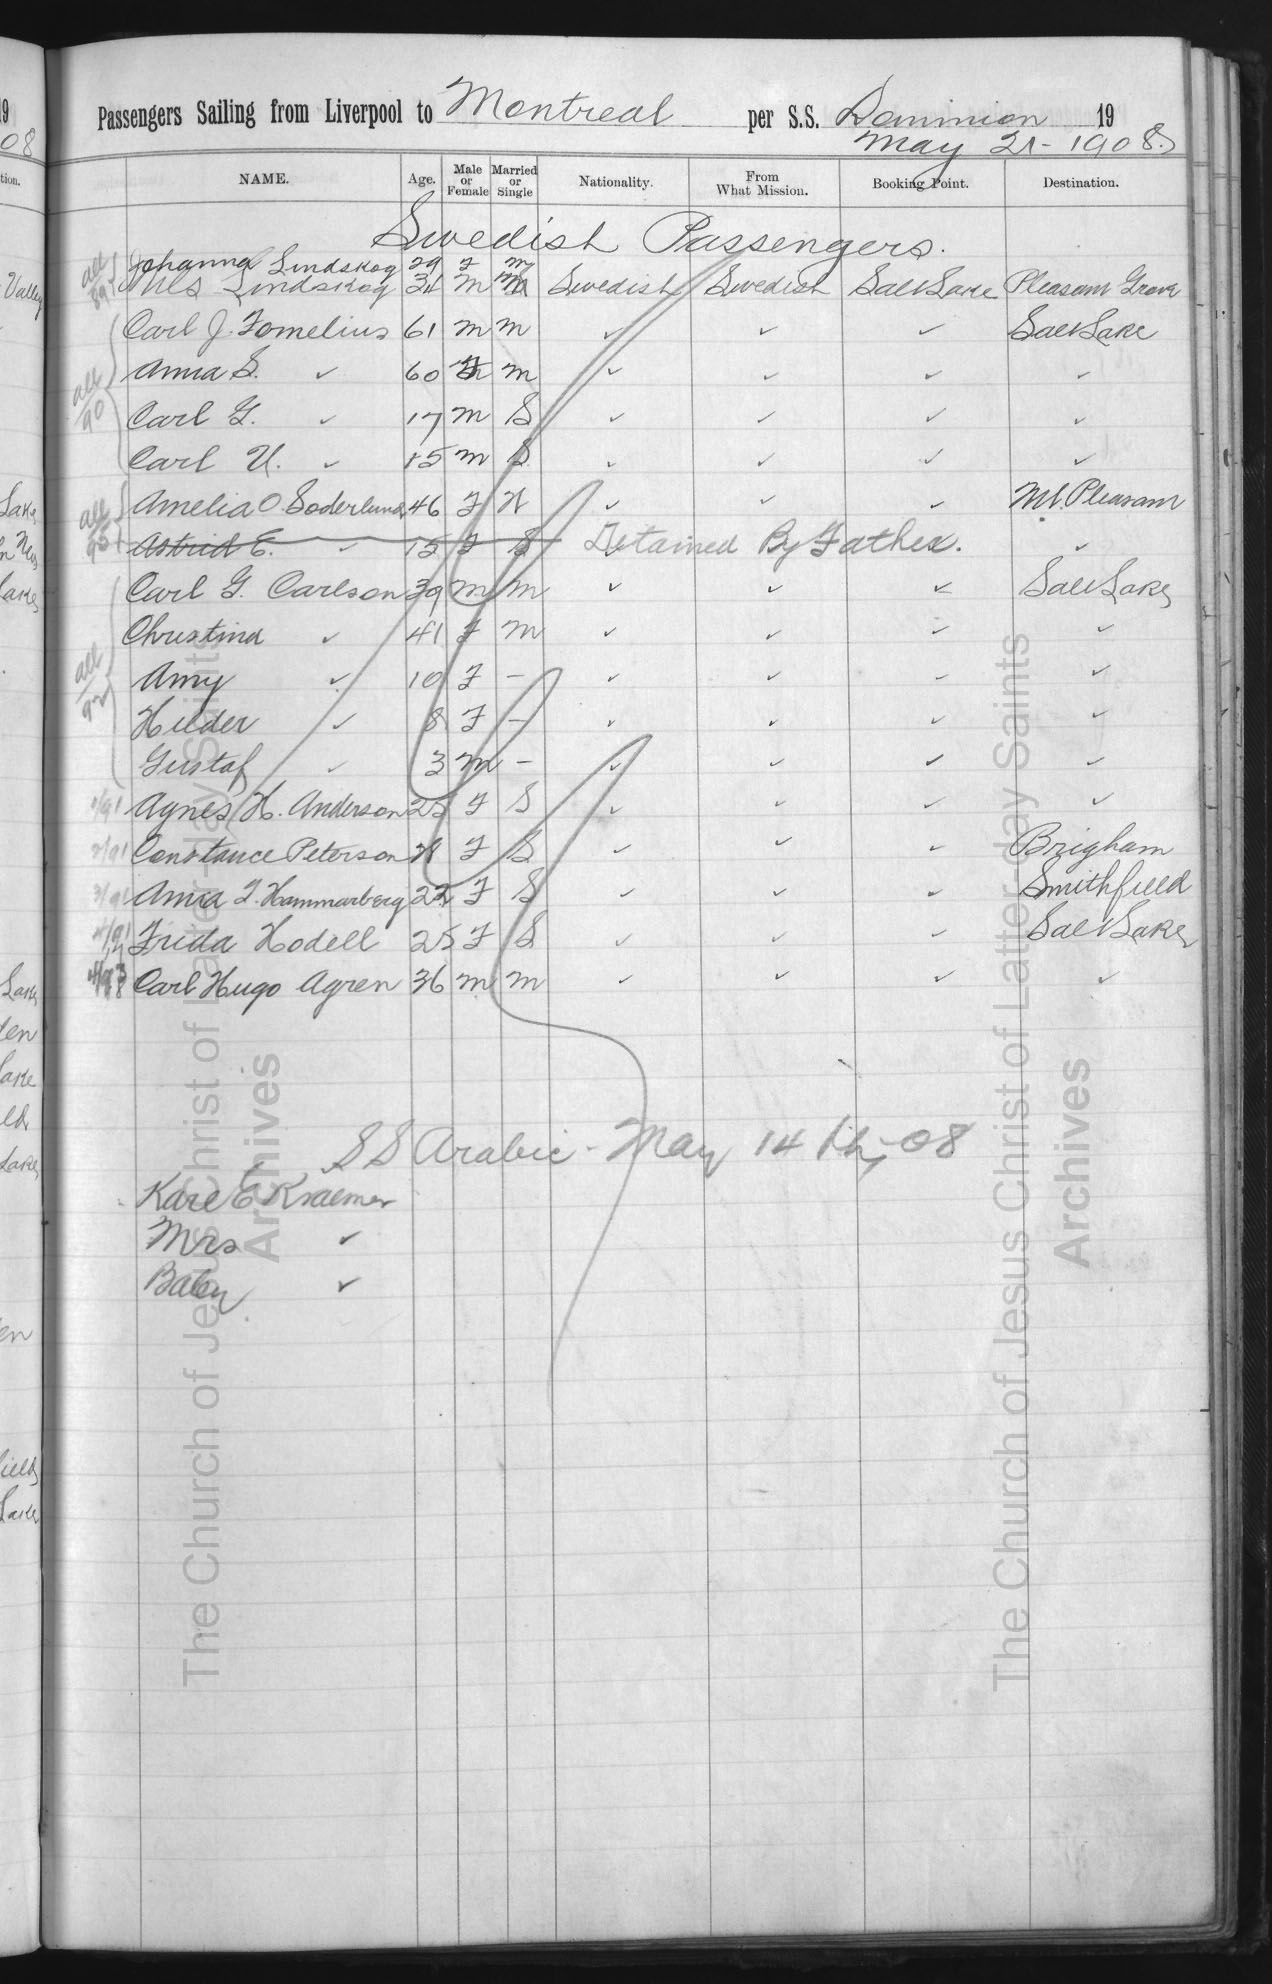 Passengers Sailing from Liverpool to Montreal per S.S. Dominion 19
May 21 - 1908.
NAME. Age. Male or Female Married or Single Nationality. From What Mission. Booking Point. Destination.
Swedish Passengers.
all 89 Johanna Lindskog 29 F m
Nils Lindskog 31 m m Swedish Swedish Salt Lake Pleasant Grove
Carl J. Fornelius 61 m m ✓ ✓ ✓ Salt Lake
all 90 Anna S. ✓ 60 F m ✓ ✓ ✓ ✓
Carl G. ✓ 17 m S ✓ ✓ ✓ ✓
Carl U. ✓ 15 m S ✓ ✓ ✓ ✓
all Amelia O. Soderlund 46 F ✓ ✓ ✓ Mt. Pleasant
Astrid E. ✓ 15 F S Detained By Father. ✓
Carl G. Carlson 39 m m ✓ ✓ ✓ Salt Lake
Christina ✓ 41 F m ✓ ✓ ✓ ✓
all 92 Amy ✓ 10 F - ✓ ✓ ✓ ✓
Hilder ✓ 8 F - ✓ ✓ ✓ ✓
Gustaf ✓ 3 m - ✓ ✓ ✓ ✓
1/91 Agnes H. Anderson 25 F S ✓ ✓ ✓ ✓
2/91 Constance Peterson F S ✓ ✓ ✓ Brigham
3/91 Anna T. Hammarberg 22 F S ✓ ✓ ✓ Smithfield
4/91 Frida Hodell 25 F S ✓ ✓ ✓ Salt Lake
Carl Hugo Agren 36 m m ✓ ✓ ✓ ✓
SS Arabic - May 14th, 08
Karl E Kraemer
Mrs ✓
Baby ✓
The Church of Jesus Christ of Latter-day Saints
Archives
The Church of Jesus Christ of Latter-day Saints
Archives